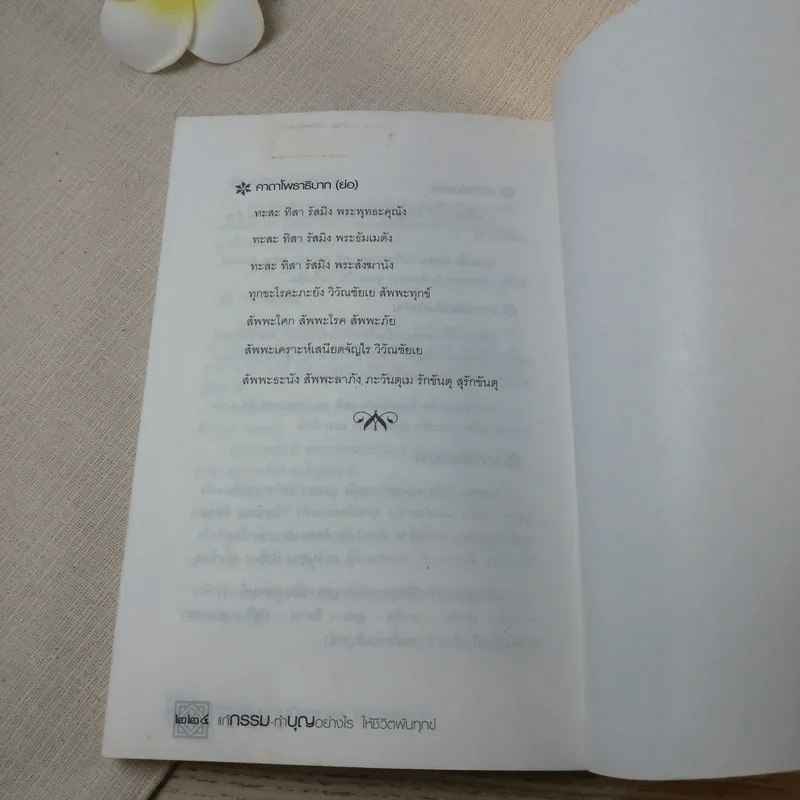 คาถาโพธาธิบาท (ย่อ)
ทะสะ ทิสา รัสมิง พระพุทธะคุณัง
ทะสะ ทิสา รัสมิง พระธัมเมตัง
ทะสะ ทิสา รัสมิง พระสังฆานัง
ทุกขะโรคะภะยัง วิวัณชัยเย สัพพะทุกข์
สัพพะโศก สัพพะโรค สัพพะภัย
สัพพะเคราะห์เสนียดจัญไร วิวัณชัยเย
สัพพะธะนัง สัพพะลาภัง ภะวันตุเม รักขันตุ สุรักขันตุ
๒๒๔ แก้กรรม-ทำบุญอย่างไร ให้ชีวิตพ้นทุกข์